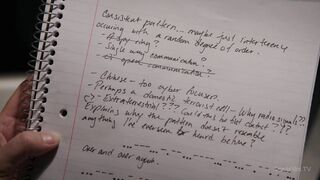 Consistent pattern... maybe just interference
occuring with a random degree of order.
- A spy ring?
- Single way communication?
- Or open communication?
- Chinese - too cyber focused.
- Perhaps a domestic terrorist cell - Why radio signals??
- Extraterrestrial??? Could this be first contact???
Explains why the pattern doesn't resemble
anything I've ever seen or heard before!
... --- ...
over and over again.